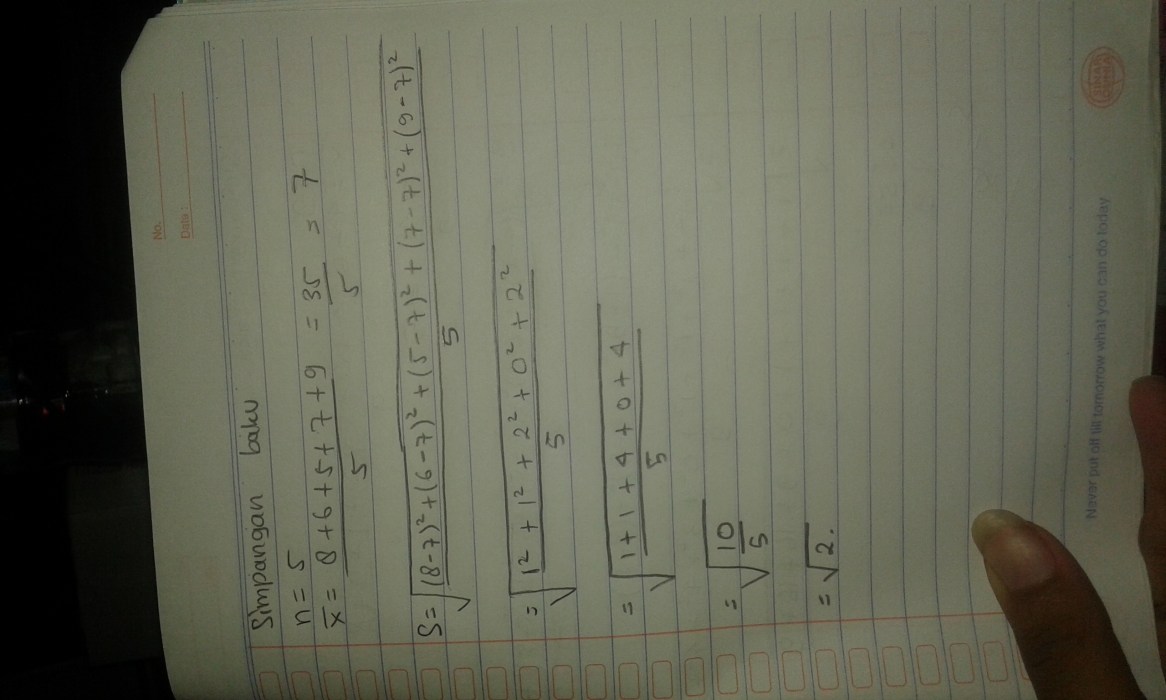 No.
Date :
Simpangan baku
n = 5
x̄ = (8+6+5+7+9)/5 = 35/5 = 7
S = √(((8-7)² + (6-7)² + (5-7)² + (7-7)² + (9-7)²)/5)
= √((1² + 1² + 2² + 0² + 2²)/5)
= √((1+1+4+0+4)/5)
= √(10/5)
= √2.
Never put off till tomorrow what you can do today
SINAR